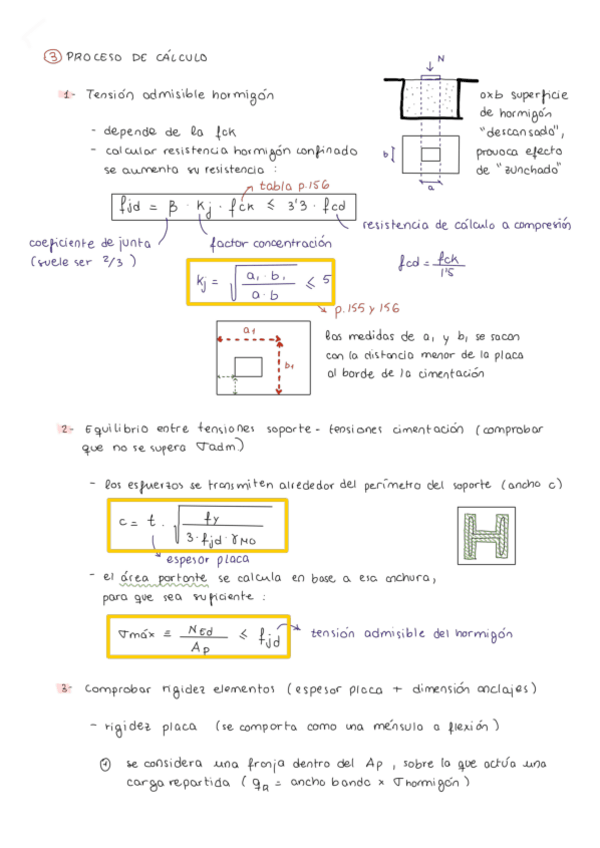 3 PROCESO DE CÁLCULO
1- Tensión admisible hormigón
- depende de la fck
- calcular resistencia hormigón confinado
se aumenta su resistencia :
N
b
a
axb superficie
de hormigón
"descansado",
provoca efecto
de "zunchado"
tabla p.156
fjd = β · Kj · fck ≤ 3'3 · fcd
resistencia de cálculo a compresión
coeficiente de junta
(suele ser 2/3 )
factor concentración
fcd = fck / 1'5
Kj = √(a1 · b1 / a · b) ≤ 5
p.155 y 156
a1
b1
las medidas de a1 y b1 se sacan
con la distancia menor de la placa
al borde de la cimentación
2- Equilibrio entre tensiones soporte - tensiones cimentación (comprobar
que no se supera σadm)
- los esfuerzos se transmiten alrededor del perímetro del soporte (ancho c)
c = t · √(fy / 3 · fjd · γM0)
espesor placa
- el área portante se calcula en base a esa anchura,
para que sea suficiente :
σmáx = NEd / Ap ≤ fjd
tensión admisible del hormigón
3- Comprobar rigidez elementos (espesor placa + dimensión anclajes)
- rigidez placa (se comporta como una ménsula a flexión)
1 se considera una franja dentro del Ap , sobre la que actúa una
carga repartida ( qR = ancho banda × σhormigón )